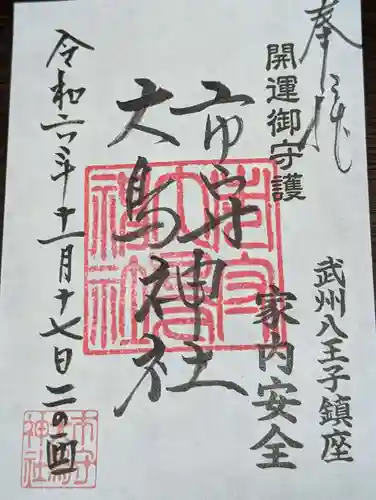 奉拝
開運御守護
武州八王子鎮座
家内安全
市守神社
大鳥神社
令和六年十一月十七日二の酉
市守
大鳥
神社
市守
大鳥
神社